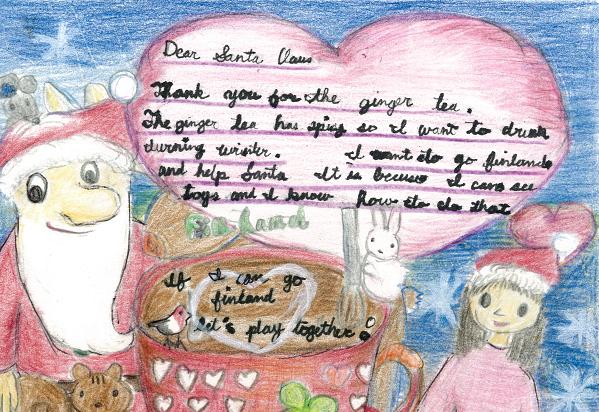 Dear Santa Claus
Thank you for the ginger tea.
The ginger tea has spicy so I want to drink
durning winter. I want to go finland
and help Santa It is becuse I can see
toys and I know how to do that
If I can go
finland
let's play together!